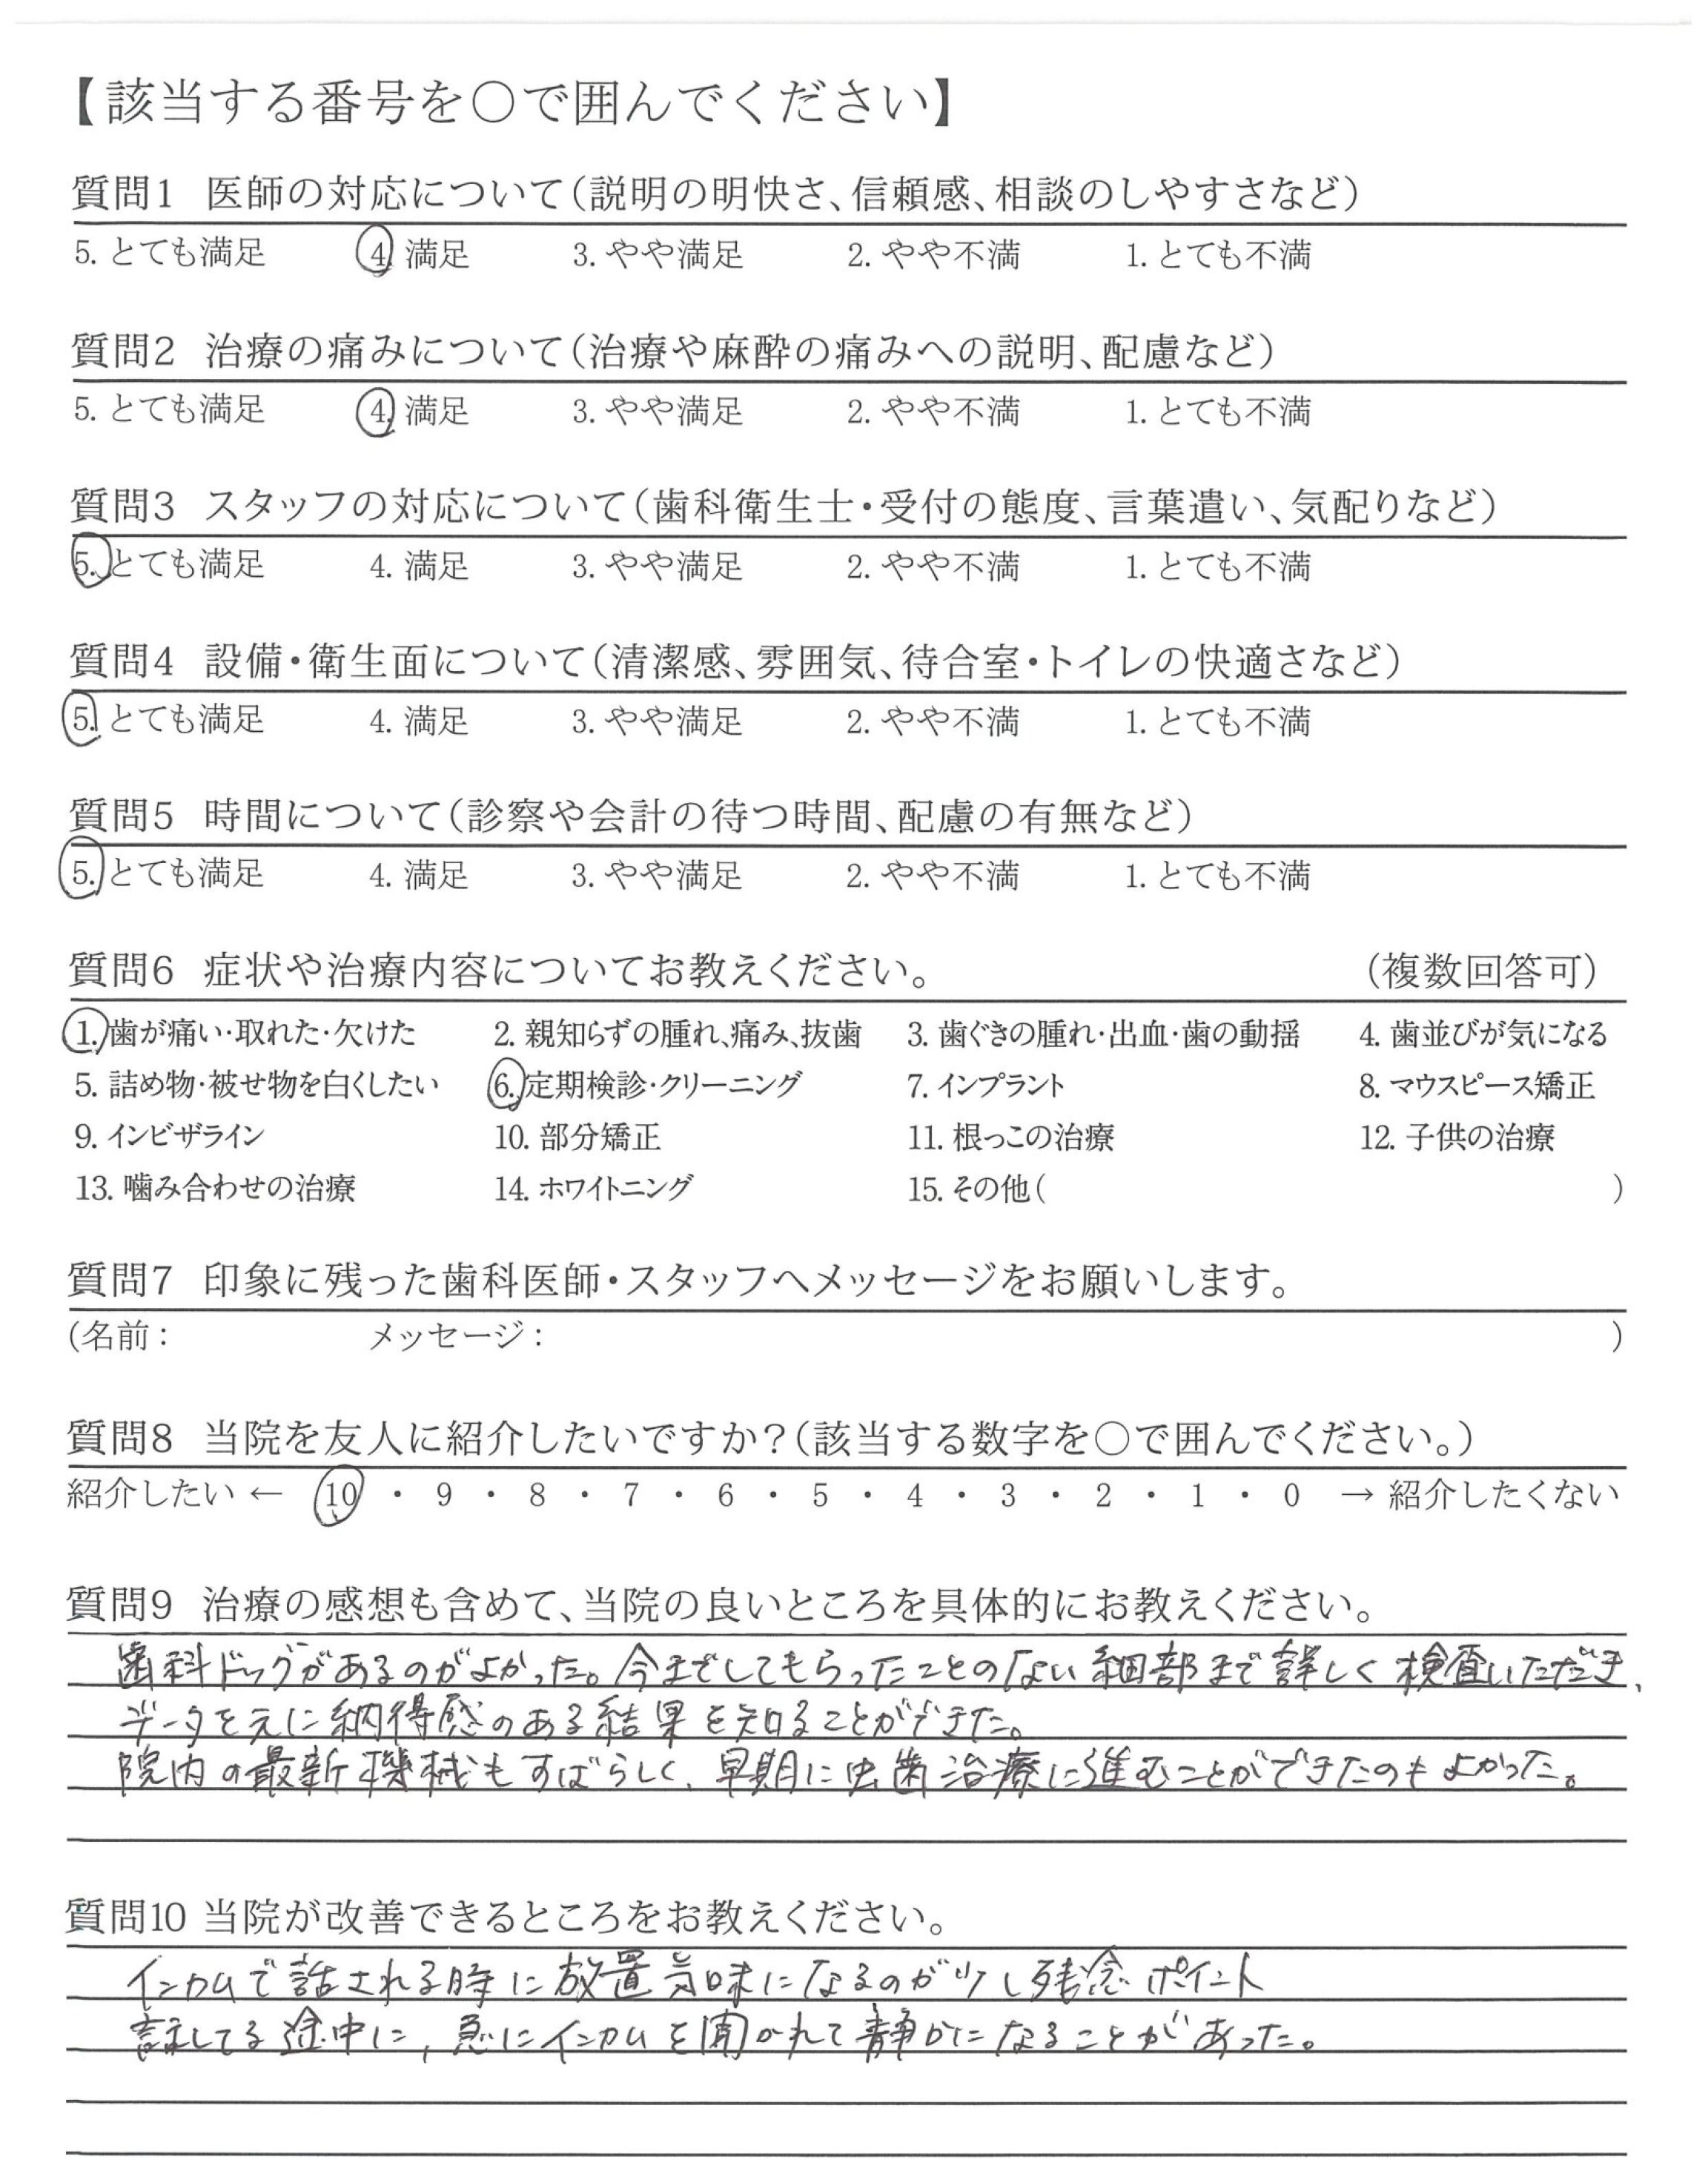 【該当する番号を○で囲んでください】
質問1 医師の対応について(説明の明快さ、信頼感、相談のしやすさなど)
5. とても満足 4. 満足 3. やや満足 2. やや不満 1. とても不満
質問2 治療の痛みについて(治療や麻酔の痛みへの説明、配慮など)
5. とても満足 4. 満足 3. やや満足 2. やや不満 1. とても不満
質問3 スタッフの対応について(歯科衛生士・受付の態度、言葉遣い、気配りなど)
5. とても満足 4. 満足 3. やや満足 2. やや不満 1. とても不満
質問4 設備・衛生面について(清潔感、雰囲気、待合室・トイレの快適さなど)
5. とても満足 4. 満足 3. やや満足 2. やや不満 1. とても不満
質問5 時間について(診察や会計の待つ時間、配慮の有無など)
5. とても満足 4. 満足 3. やや満足 2. やや不満 1. とても不満
質問6 症状や治療内容についてお教えください。 (複数回答可)
1. 歯が痛い・取れた・欠けた 2. 親知らずの腫れ、痛み、抜歯 3. 歯ぐきの腫れ・出血・歯の動揺 4. 歯並びが気になる
5. 詰め物・被せ物を白くしたい 6. 定期検診・クリーニング 7. インプラント 8. マウスピース矯正
9. インビザライン 10. 部分矯正 11. 根っこの治療 12. 子供の治療
13. 噛み合わせの治療 14. ホワイトニング 15. その他( )
質問7 印象に残った歯科医師・スタッフへメッセージをお願いします。
(名前: メッセージ: )
質問8 当院を友人に紹介したいですか?(該当する数字を○で囲んでください。)
紹介したい ← 10 ・ 9 ・ 8 ・ 7 ・ 6 ・ 5 ・ 4 ・ 3 ・ 2 ・ 1 ・ 0 → 紹介したくない
質問9 治療の感想も含めて、当院の良いところを具体的にお教えください。
歯科ドッグがあるのがよかった。今までしてもらったことのない細部まで詳しく検査いただき、
データを元に納得感のある結果を知ることができた。
院内の最新機械もすばらしく、早期に虫歯治療に進むことができたのもよかった。
質問10 当院が改善できるところをお教えください。
インカムで話される時に放置気味になるのが少し残念ポイント
話してる途中に、急にインカムを聞かれて静かになることがあった。